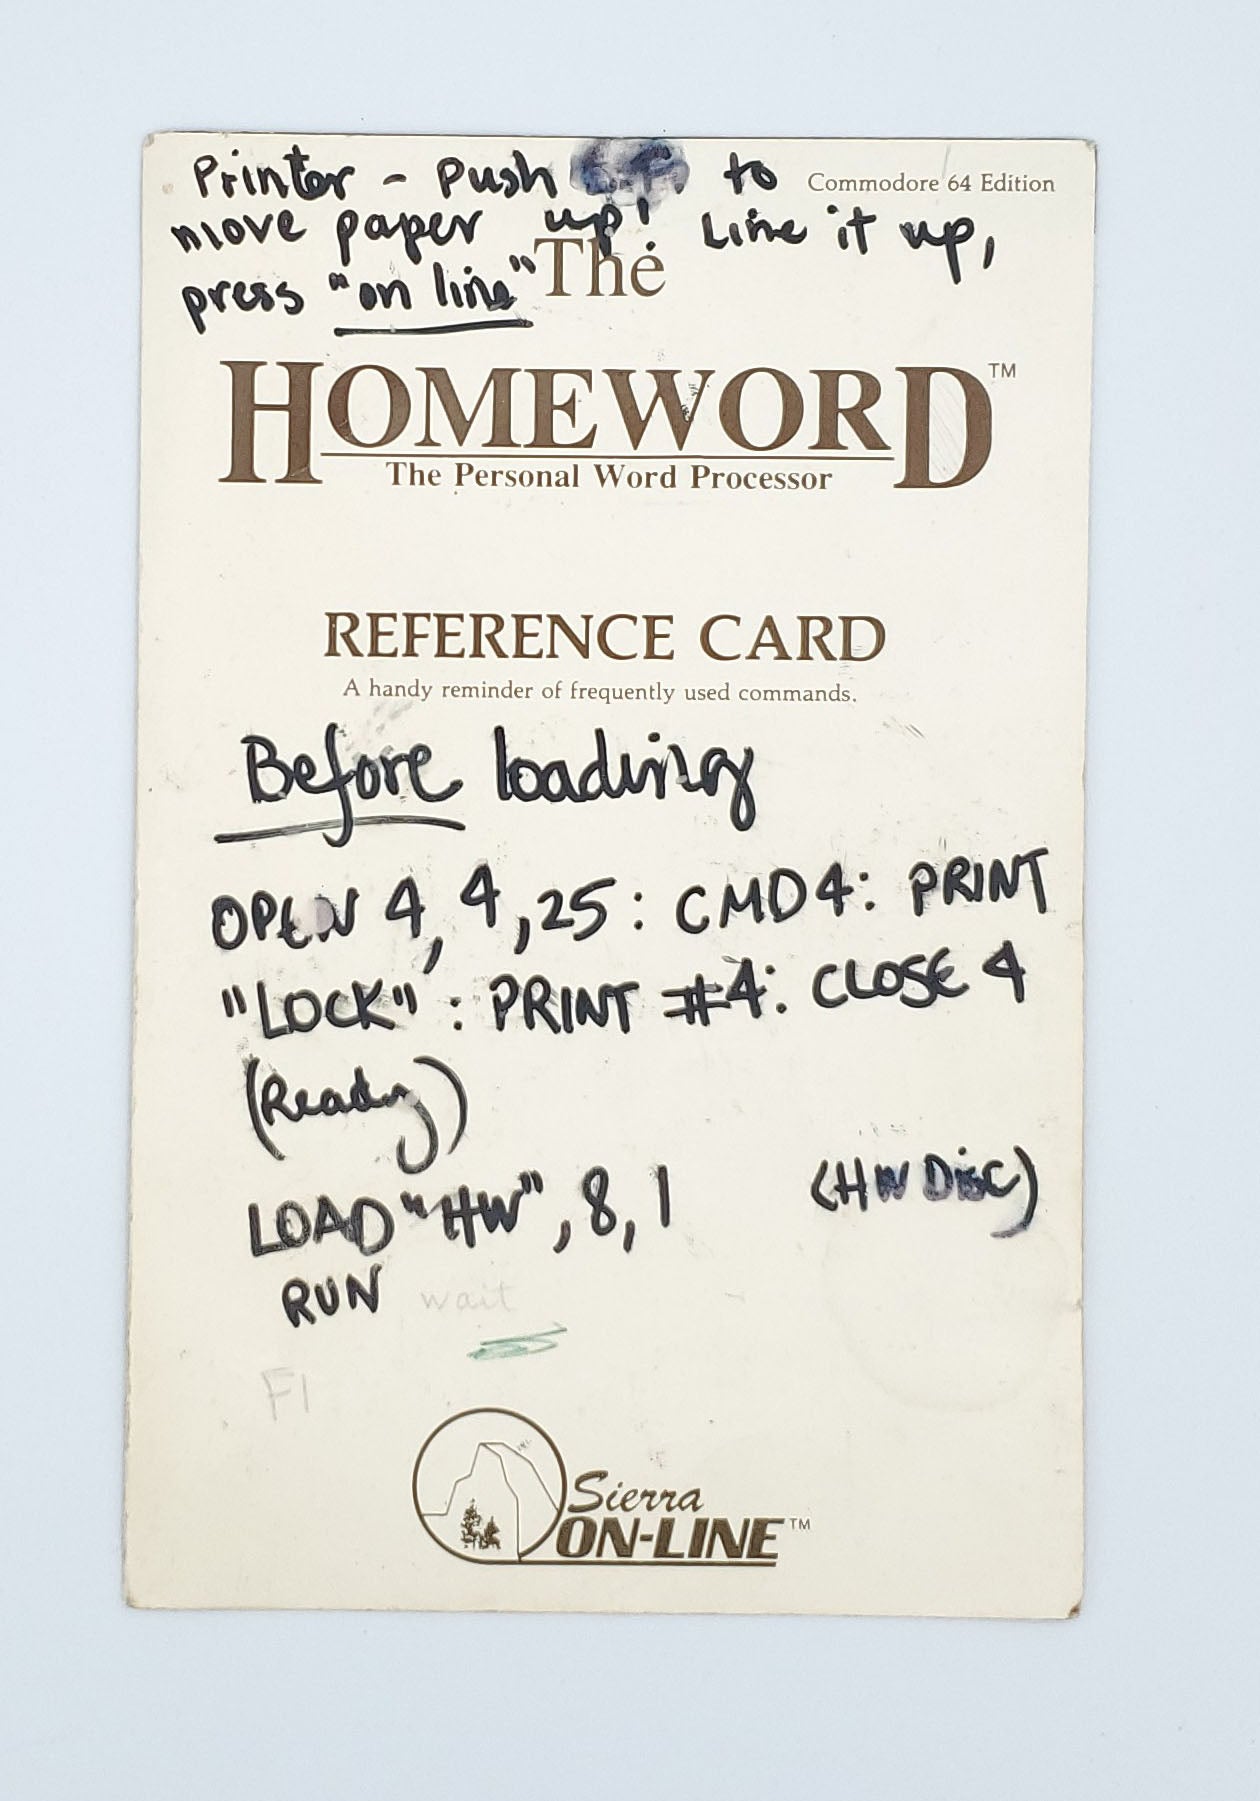 Printer - push to
Commodore 64 Edition
move paper up! Line it up,
press "on line"
The
HOMEWORD™
The Personal Word Processor
REFERENCE CARD
A handy reminder of frequently used commands.
Before loading
OPEN 4, 4, 25: CMD4: PRINT
"LOCK": PRINT #4: CLOSE 4
(Ready)
LOAD "HW", 8, 1 (HW Disc)
RUN wait
F1
Sierra
ON-LINE™